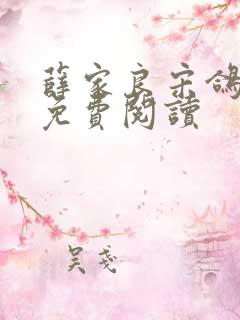 薛家良宋鴿
免費閱讀
吴戔